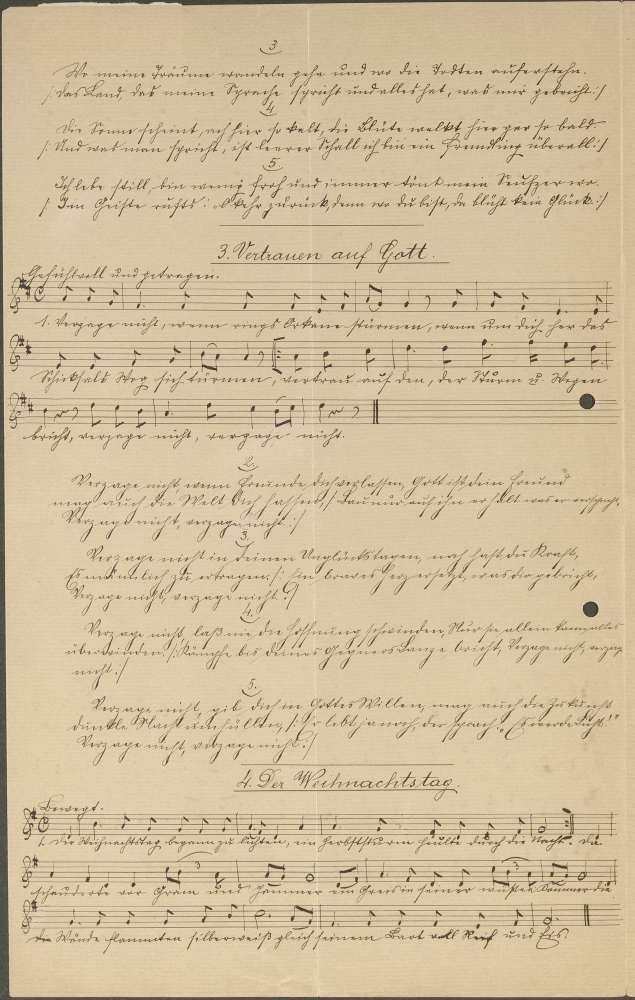 3
Wo meine Träume wandeln gehn und wo die Todten auferstehn.
/: Das Land, das meine Sprache spricht und alles hat, was mir gebricht :/
4
Die Sonne scheint, ach hier so kalt, die Blüte welkt hier gar so bald.
/: Und was man spricht, ist leerer Schall ich bin ein Fremdling überall :/
5.
Ich lebe still, bin wenig froh und immer tönt mein Seufzer wo.
/: Im Geiste rufts: o kehr zurück, denn wo du bist, da blüht kein Glück :/
3. Vertrauen auf Gott.
Gefühlvoll und getragen.
1. Verzage nicht, wenn rings Orkane stürmen, wenn um dich her des
Schicksals Wog sich türmen, vertrau auf den, der Sturm u. Wogen
bricht, verzage nicht, verzage nicht.
2.
Verzage nicht, wenn Freunde dich verlassen, Gott ist dein Freund
mag auch die Welt dich hassen, /: Bau nur auf ihn er hält was er verspricht,
Verzage nicht, verzage nicht :/
3.
Verzage nicht in deinen Unglückstagen, noch hast du Kraft,
Es männlich zu ertragen. /: Ein braves Herz ersetzt, was dir gebricht,
Verzage nicht, verzage nicht :/
4.
Verzage nicht, laß nie die Hoffnung schwinden, Nur sie allein kann alles
überwinden. /: Kämpfe bis deines Gegners Lanze bricht, Verzage nicht, verzage
nicht :/
5.
Verzage nicht, gib dich in Gottes Willen, mag auch die Zukunft
dunkle Nacht umhüllen, /: Er lebt ja noch, der sprach: „Es werde Licht!"
Verzage nicht, verzage nicht :/
4. Der Weihnachtstag.
Bewegt.
1. Der Weihnachtstag begann zu lichten, ein Herbststurm heulte durch die Nacht. Da
schauderte vor Gram und Jammer ein Greis in seiner Kammer die
die Wände flammten silberweiß gleich seinem Bart voll Reif und Eis.